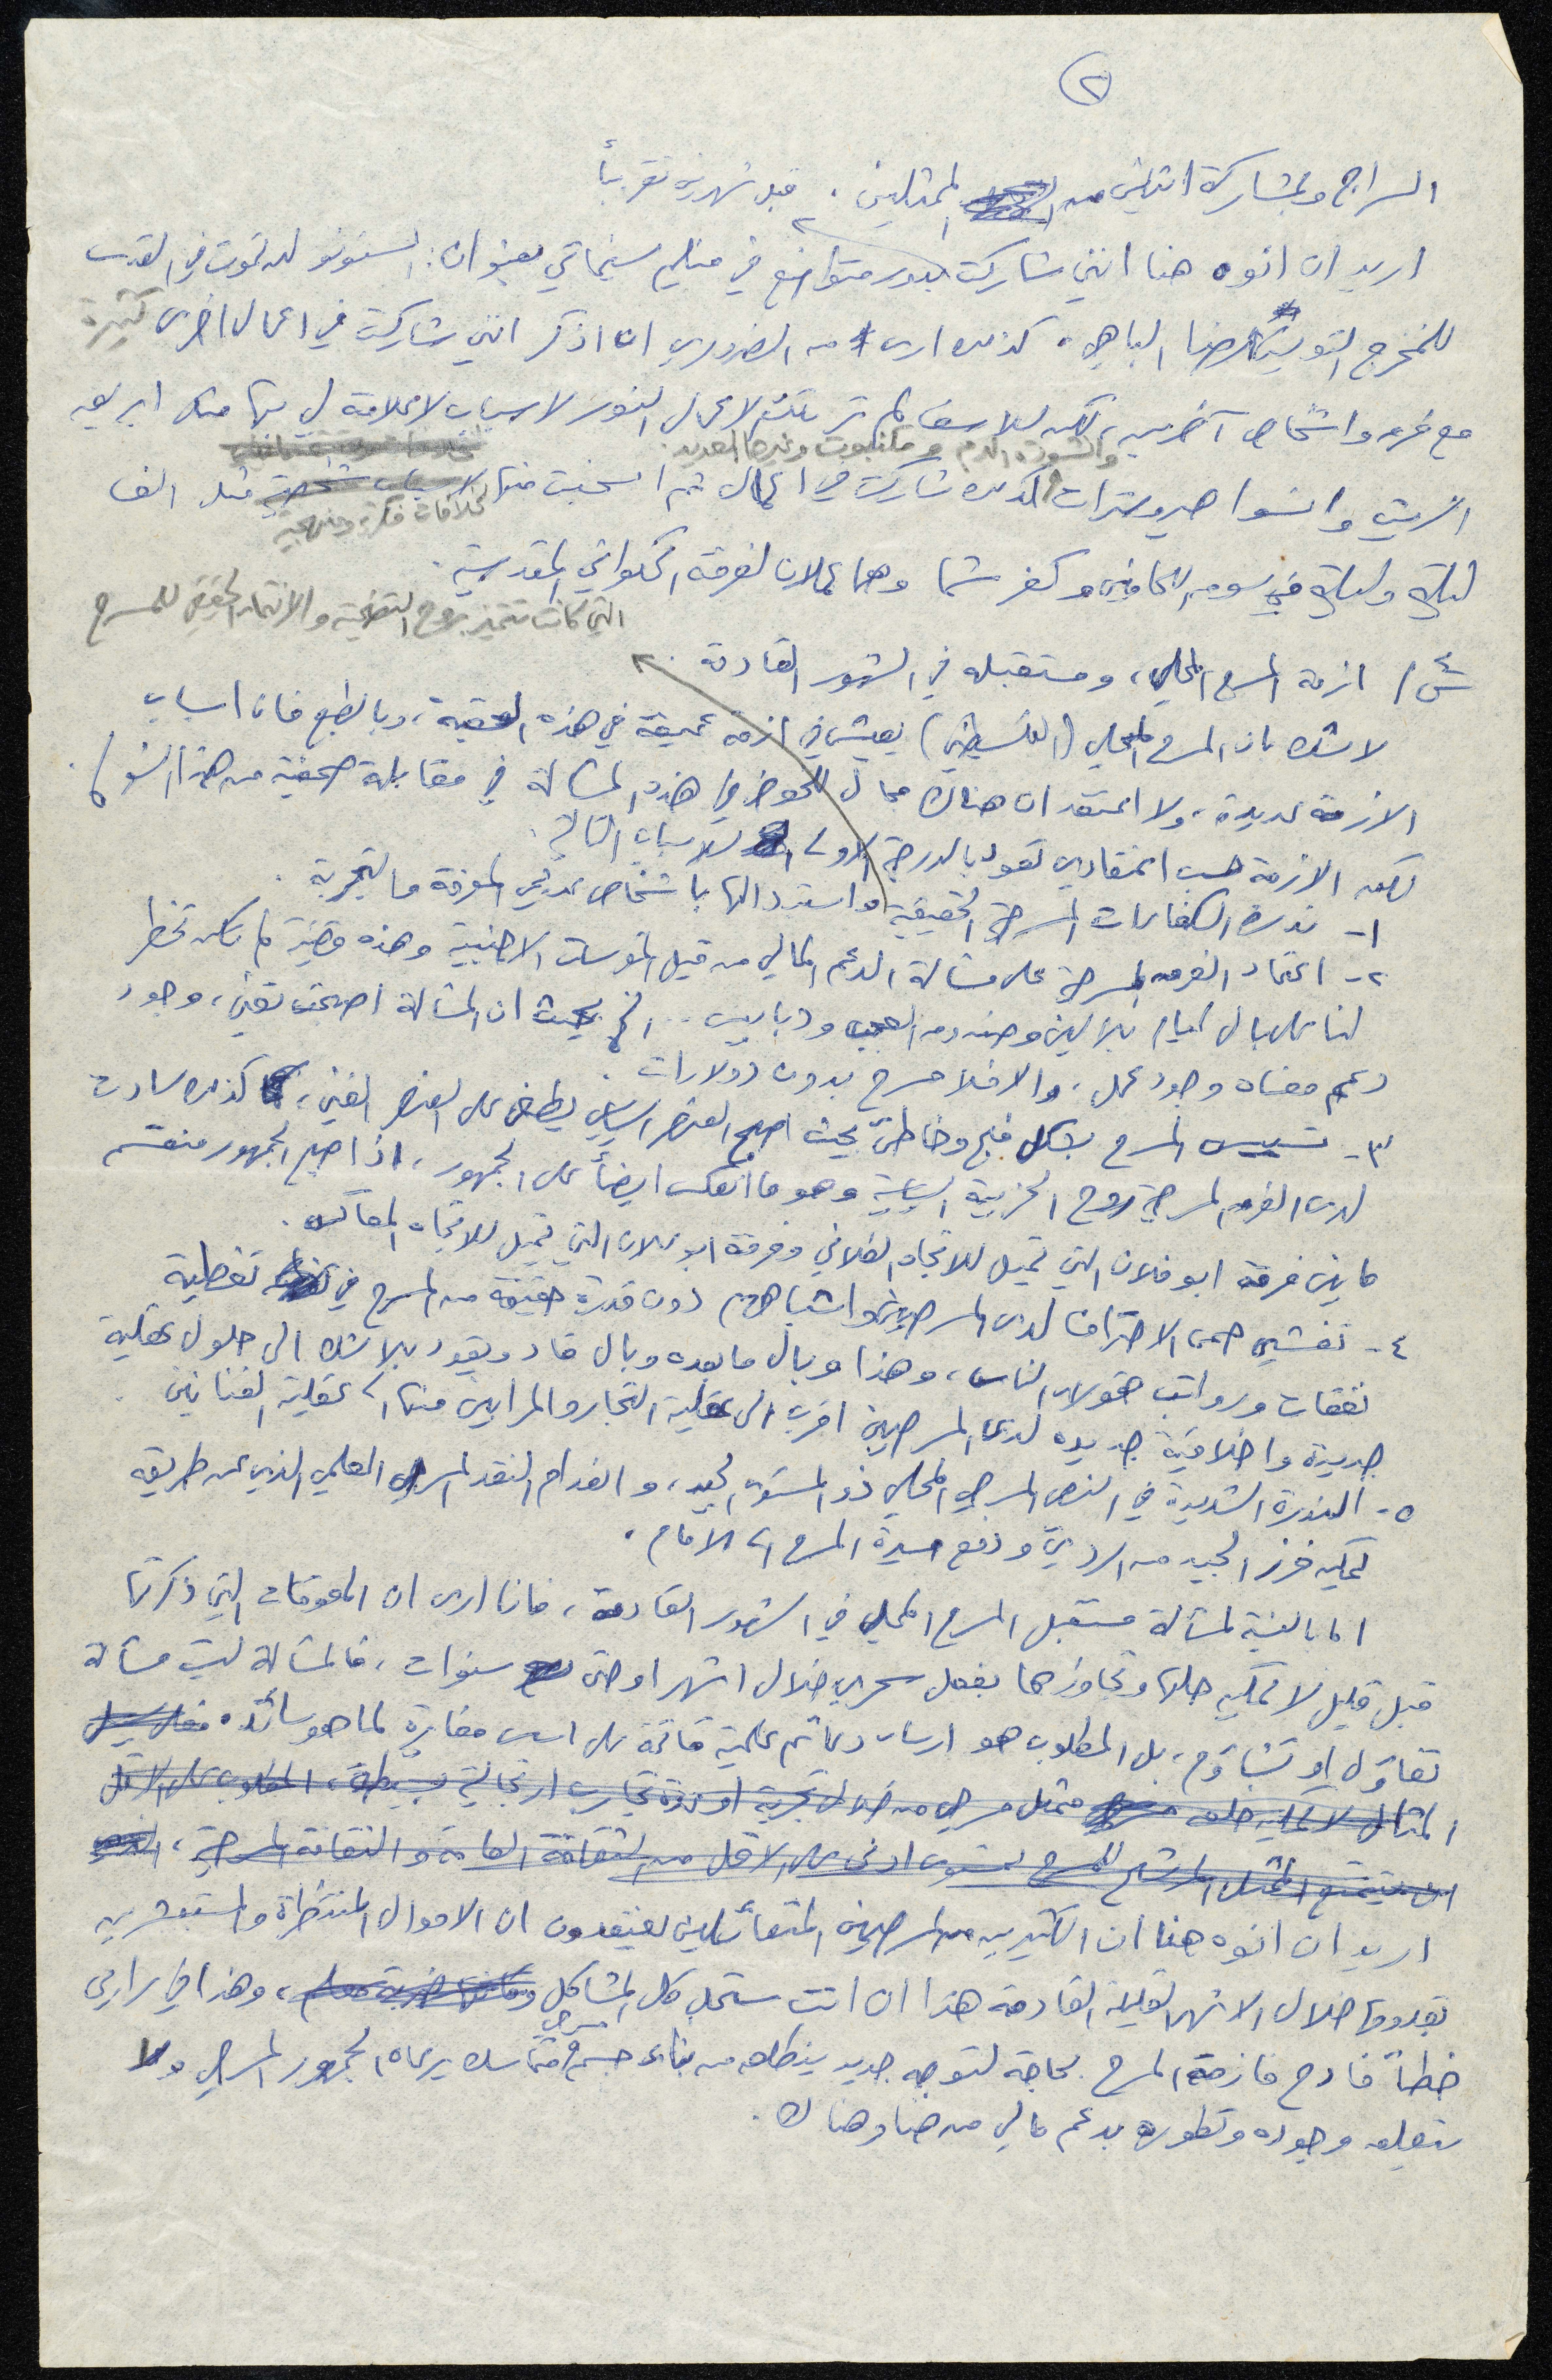 ٢
السراج وبمشاركة اثنين من الممثلين. قبل شهرين تقريباً
اريد ان انوه هنا انني شاركت بدور متواضع في فيلم سينمائي بعنوان: السنونو لا تموت في القدس
للمخرج التونسي رضا الباهي، كذلك ارى من الضروري ان اذكر انني شاركت في اعمال اخرى كثيرة
مع فرق واشخاص آخرين، لكن للاسف لم تر تلك الاعمال النور لاسباب لا علاقة لي بها مثل ابريق
الزيت وانسوا هيروسترات والشوك الدم و وغيرها العديد. كذلك شاركت في اعمال ثم انسحبت منها لخلافات فكرية ومنهجية مثل الف
ليلة وليلة في سوق اللحامين وكفر شما وهما عملان لفرقة الحكواتي المقدسية.
التي كانت تتميز بروح التضحية والانتماء الحقيقي للمسرح
س٤/ ازمة المسرح المحلي، ومستقبله في الشهور القادمة.
لا شك بان المسرح المحلي (الفلسطيني) يعيش في ازمة عميقة في هذه الحقبة، وبالطبع فان اسباب
الازمة عديدة، ولا اعتقد ان هناك مجال للخوض في هذه المسألة في مقابلة صحفية من هذا النوع.
لكن الازمة حسب اعتقادي تعود بالدرجة الاولى للاسباب التالية.
١- ندرة الكفاءات المسرحية الحقيقية واستبدالها باشخاص عديمي المعرفة والتجربة.
٢- اعتماد الفرق المسرحية على مسألة الدعم المالي من قبل المؤسسات الاجنبية وهذه قضية لم تكن تخطر
لنا على بال ايام بلالين وصندوق العجب ودبابيس... الخ بحيث ان المسألة اصبحت تعني، وجود
دعم معناه وجود عمل، والا فلا مسرح بدون دولارات.
٣- تسييس المسرح بشكل فج وخاطئ بحيث اصبح العنصر السياسي يطغى على العنصر الفني، كذلك سادت
لدى الفرق المسرحية روح الحزبية السياسية وهو ما انعكس ايضاً على الجمهور، اذ اصبح الجمهور منقسم
ما بين فرقة ابو فلان التي تميل للاتجاه الفلاني وفرقة ابو علان التي تميل للاتجاه المعاكس.
٤- تفشي حمى الاحتراف لدى المسرحيين واشباههم دون قدرة حقيقية من المسرح في تغطية
نفقات ورواتب هؤلاء الناس، وهذا وبال ما بعده وبال قاد ويقود بلا شك الى حلول عقلية
جديدة واخلاقية جديدة لدى المسرحيين اقرب الى عقلية التجار والمرابين منها الى عقلية الفنانين.
٥- الندرة الشديدة في النص المسرحي المحلي ذو المستوى الجيد، وانعدام النقد المسرحي العلمي الذي عن طريقه
يمكن فرز الجيد من الرديئ ودفع مسيرة المسرح الى الامام.
اما بالنسبة لمسألة مستقبل المسرح المحلي في الشهور القادمة، فانا ارى ان المعوقات التي ذكرتها
قبل قليل لا يمكن حلها وتجاوزها بفعل سحري خلال اشهر او حتى سنوات، فالمسألة ليست مسألة
تفاؤل او تشاؤم، بل المطلوب هو ارساء دعائم علمية قائمة على اسس مغايرة لما هو سائد. فعلى سبيل
المثال لا يمكن خلق ممثل مسرحي من خلال تجربة او عدة تجارب ارتجالية بسيطة، المطلوب على الاقل
ان يتمتع الممثل المرشح للمسرح بمستوى ادنى على الاقل من الثقافة العامة والثقافة المسرحية،
اريد ان انوه هنا ان الكثيرين من المسرحيين المتفائلين يعتقدون ان الاموال المنتظرة والمستبشرين
بقدومها خلال الاشهر القليلة القادمة هذا ان اتت ستحل كل المشاكل، وهذا في رأيي
خطأ فادح فازمة المسرح بحاجة لتوجه جديد ينطلق من بناء جسم مسرحي متماسك يرعاه الجمهور المسرحي ولا
يتعلق وجوده وتطوره بدعم مالي من هنا وهناك.